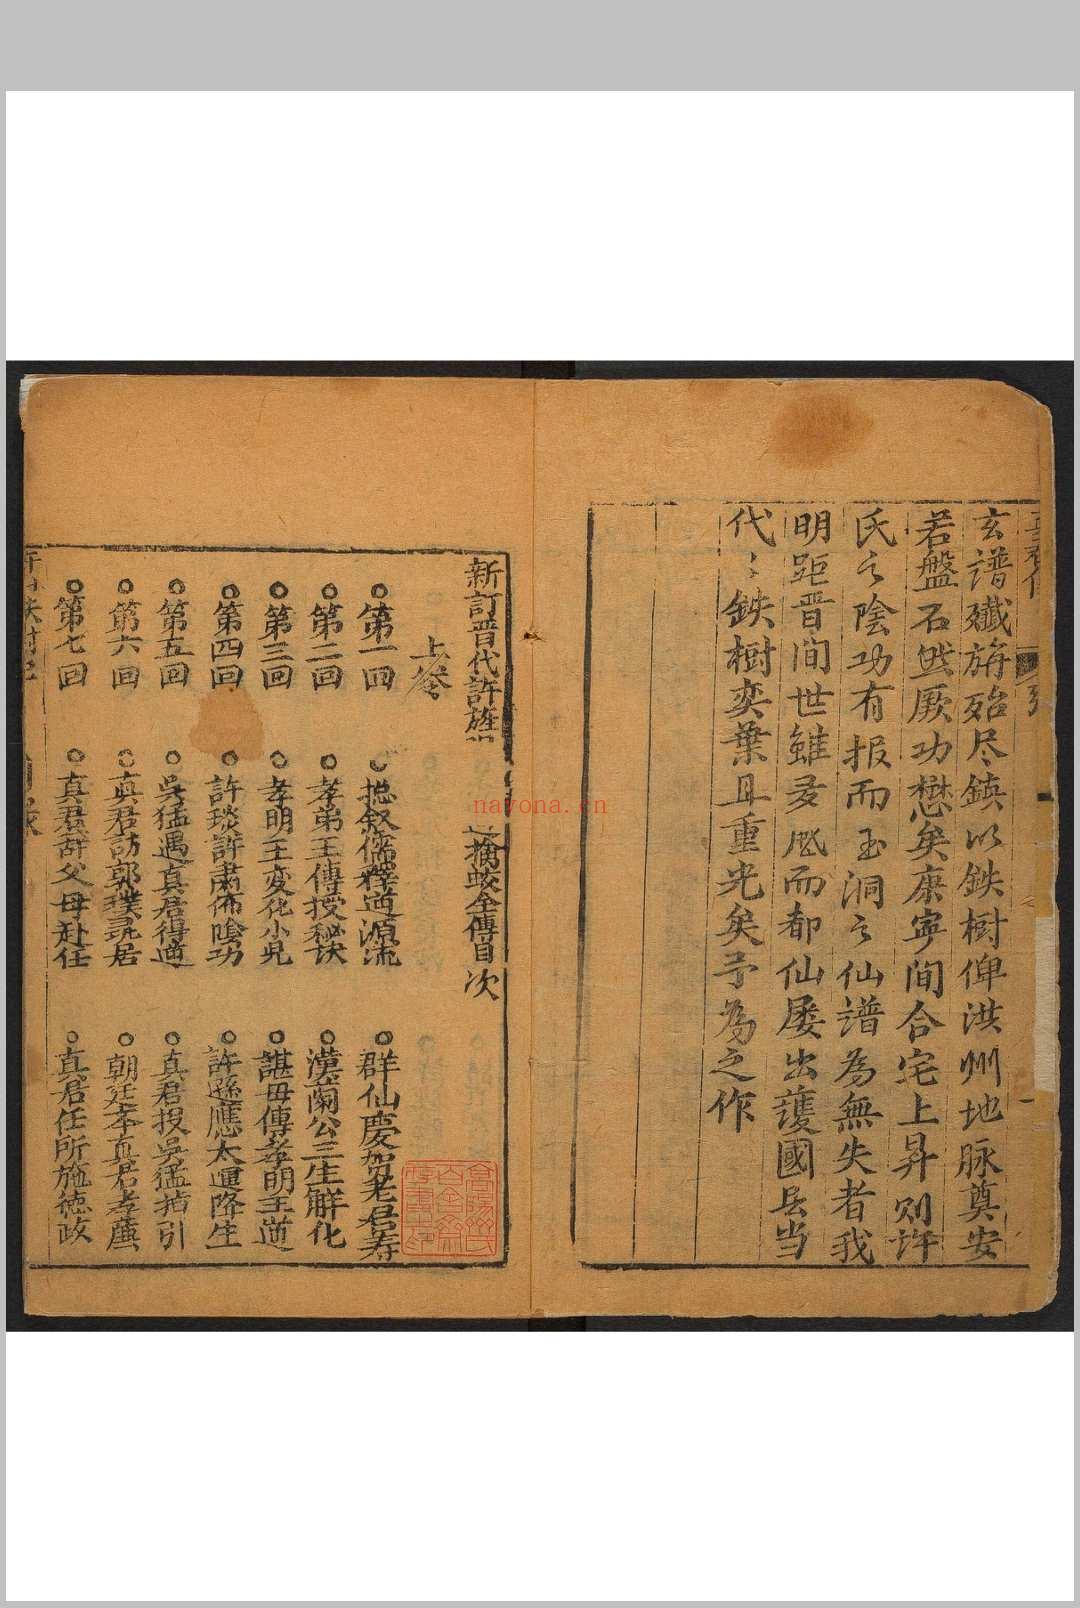 玄譜殲旃殆尽鎮以鉄樹俾洪州地脉奠安
若盤石然厥功懋矣康寧間合宅上昇则許
氏之陰功有报而玉洞之仙譜為無失者我
明距晋间世雖夐凞而都仙屡出護國兵當
代〻鉄樹奕葉且重光矣予為之作
新訂晋代許旌
擒蛟全傳目次
上卷
第一回 揔叙儒釋道源流 群仙慶贺老君寿
第二回 孝弟王傳授秘訣 漢蘭公三生解化
第三回 孝明王变化小兒 諶母傳孝明王道
第四回 許琰許肅佈陰功 許遜應太運降生
第五回 吳猛遇真君得道 真君投吳猛指引
第六回 真君訪郭璞尋居 朝廷奉真君孝廉
第七回 真君辞父母赴任 真君任所施德政
nayona.cn